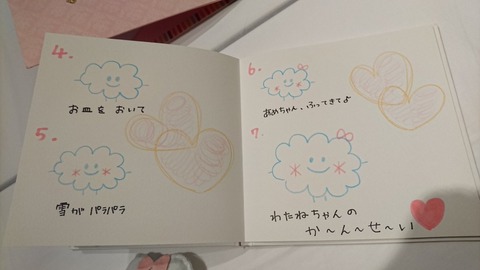 4.
お皿を おいて
5.
雪が パラパラ
6.
あめちゃん、ふってきてよ
7.
わたねちゃんの
か〜ん〜せ〜い